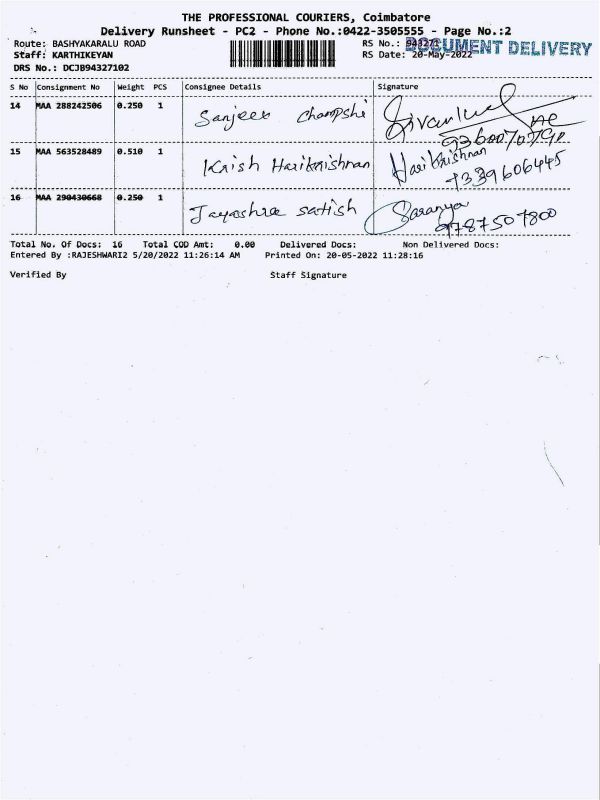 THE PROFESSIONAL COURIERS, Coimbatore
Delivery Runsheet - PC2 - Phone No.:0422-3505555 - Page No.:2
Route: BASHYAKARALU ROAD RS No.: 943271
DOCUMENT DELIVERY
Staff: KARTHIKEYAN RS Date: 20-May-2022
DRS No.: DCJB94327102
S No Consignment No Weight PCS Consignee Details Signature
14 MAA 288242506 0.250 1 Sanjeev Champshi
15 MAA 563528489 0.510 1 Krish Harikrishnan Harikrishnan
7339606445
16 MAA 290430668 0.250 1 Jayashree satish Saranya
9787507800
Total No. Of Docs: 16 Total COD Amt: 0.00 Delivered Docs: Non Delivered Docs:
Entered By :RAJESHWARI2 5/20/2022 11:26:14 AM Printed On: 20-05-2022 11:28:16
Verified By Staff Signature